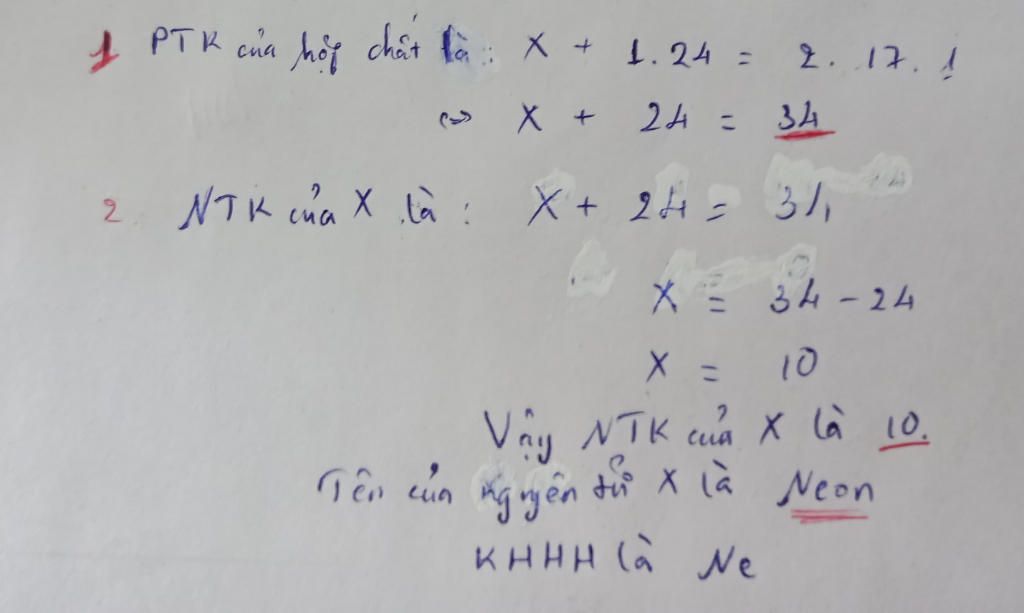 1 PTK của hợp chất là: X + 1.24 = 2. 17. 1
<=> X + 24 = 34
2. NTK của X là: X + 24 = 34
X = 34 - 24
X = 10
Vậy NTK của X là 10.
Tên của nguyên tử X là Neon
KHHH là Ne